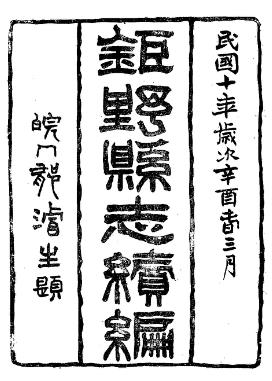 民國十年歲次辛酉春三月
鉅野縣志續編
皖人郁濬生題